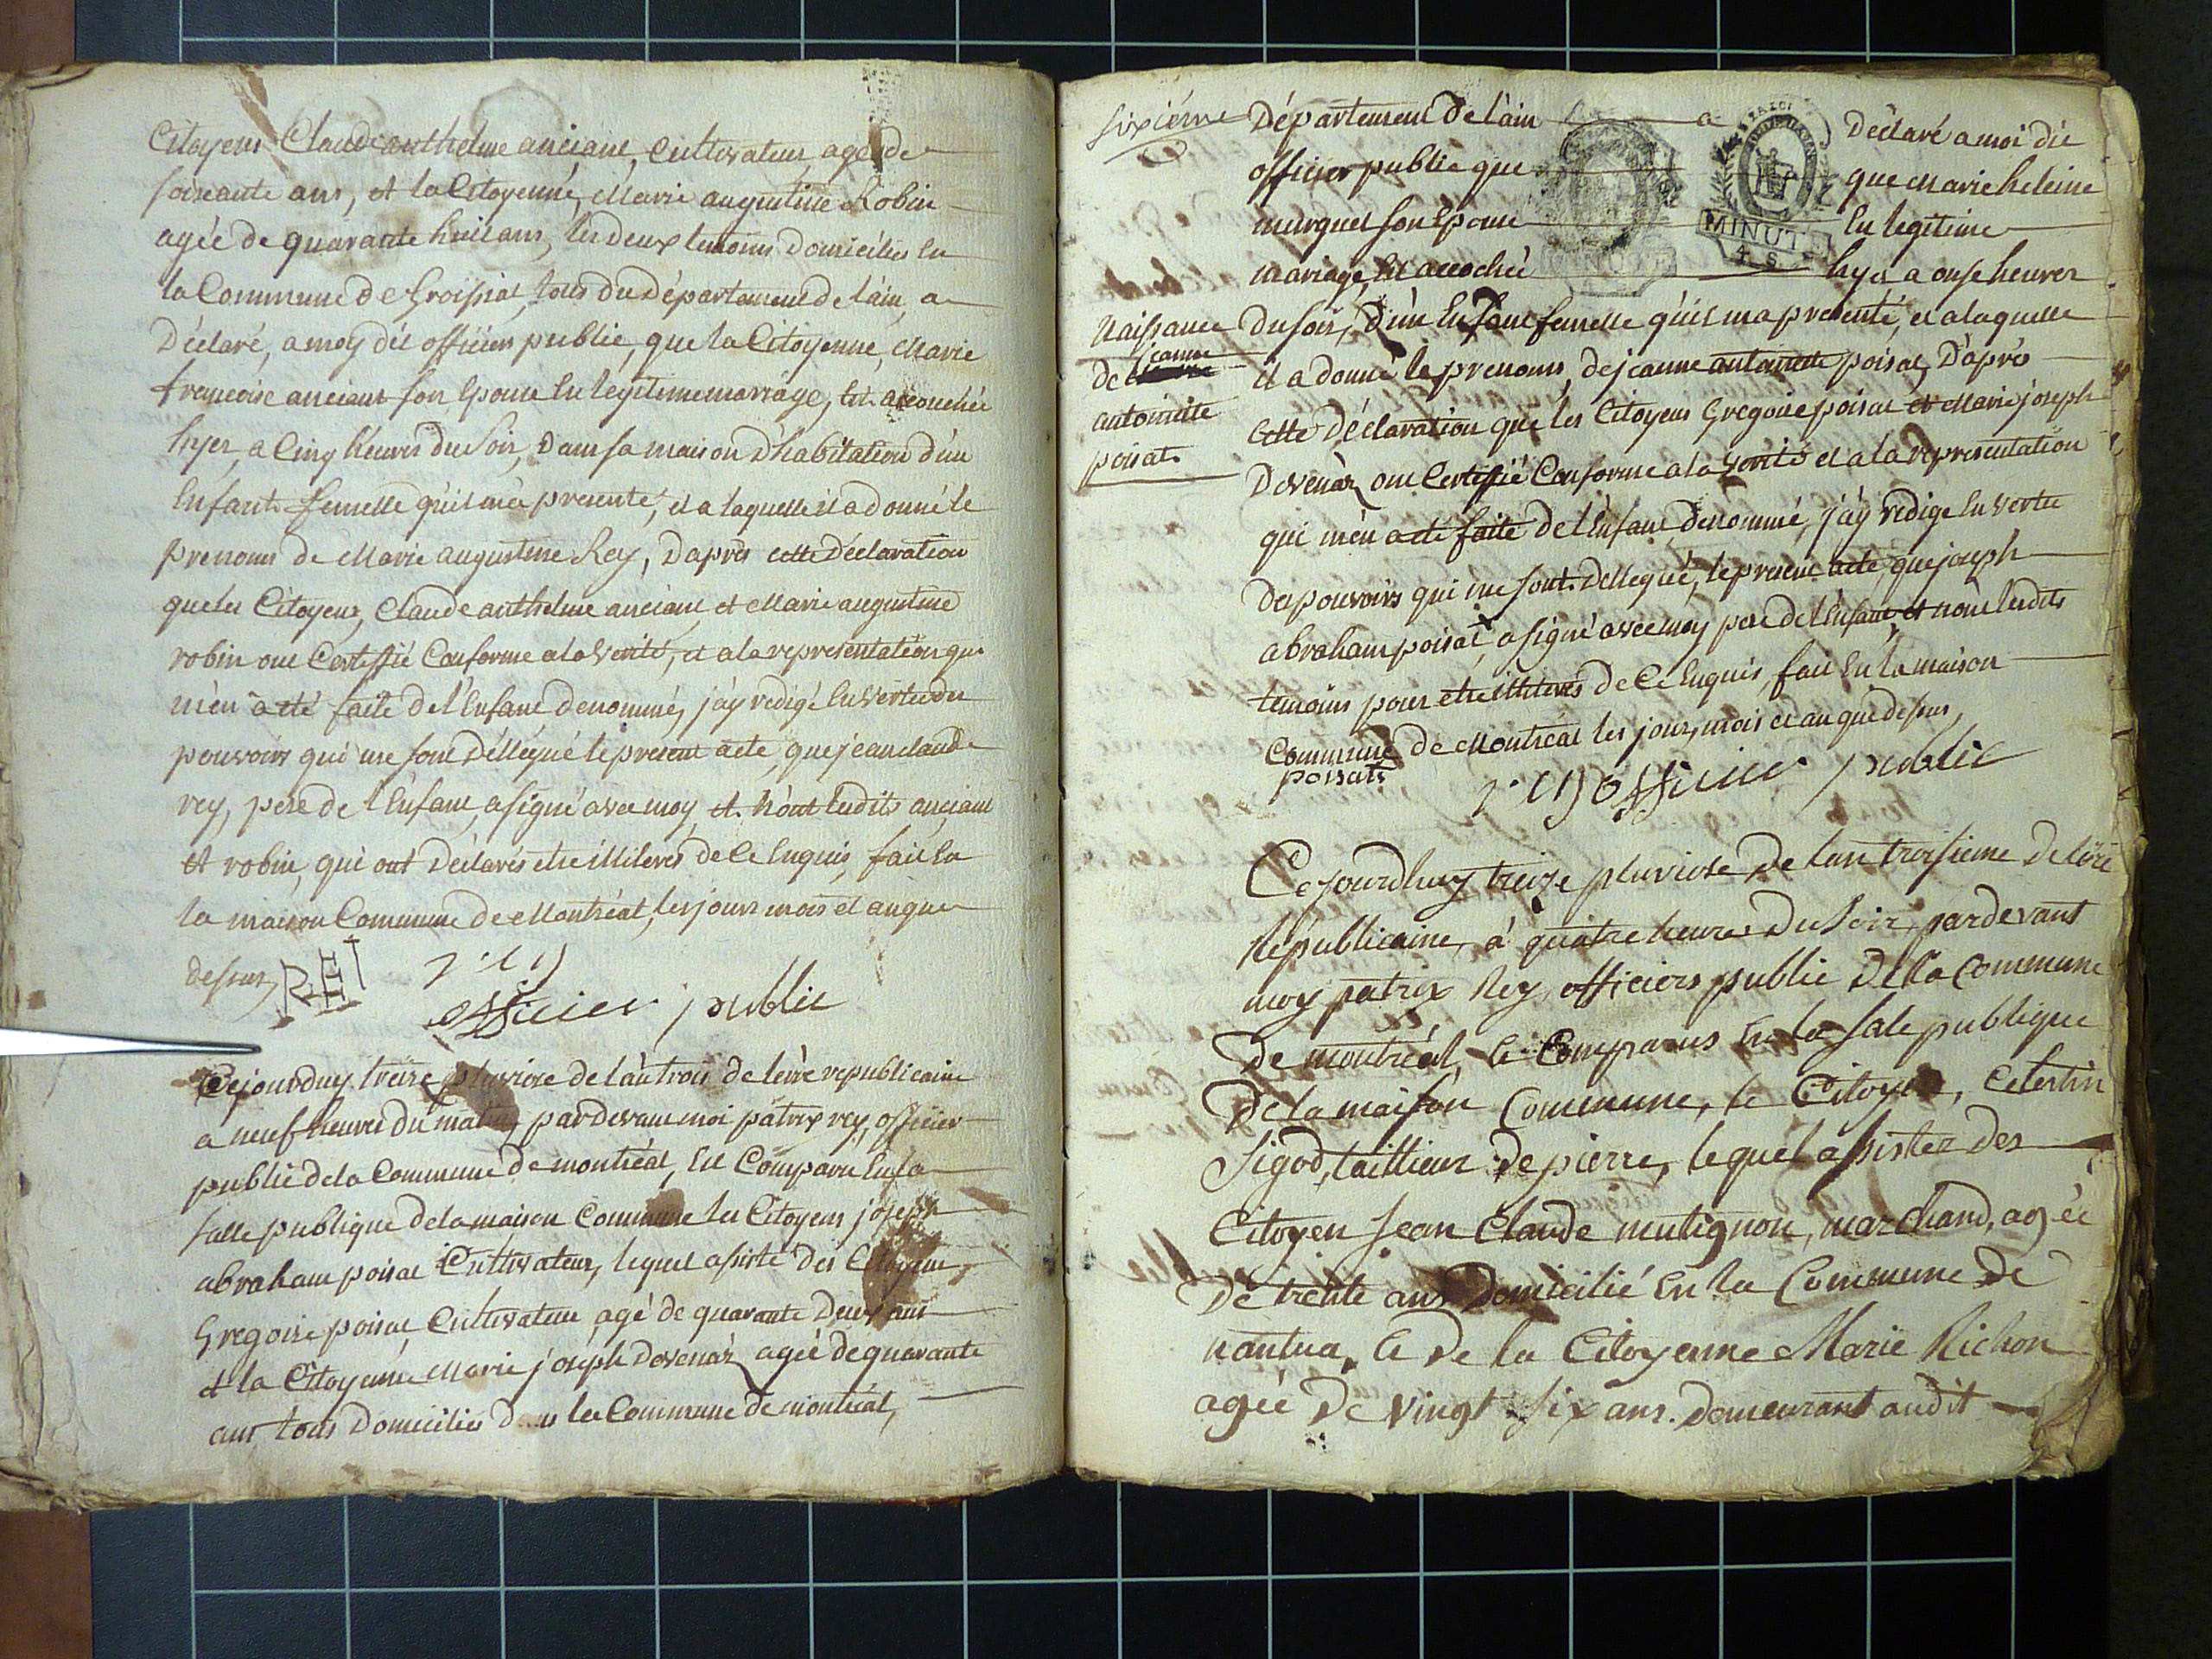 Citoyens Claude anthelme anciant, cultivateur agé de
soixante ans, et la Citoyenne, Marie augustine Robin
agée de quarante huit ans, les deux temoins domiciliés en
la Commune de Groissiat, tous du Département de l'ain, a
Déclaré, a moy dit officier public, que la Citoyenne, Marie
françoise anciant son Epouse en legitime marriage, est acouchée
hyer, a Cinq heures du Soir, Dans sa maison d'habitation d'un
Enfant femelle qu'il m'a presenté, et a laquelle il a donné le
prenoms de Marie augustine Rey, D'aprés cette Déclaration
que les Citoyens, Claude anthelme anciant et Marie augustine
robin ont Certiffié Conforme a la Verité, et a la representation qui
m'en a eté faite de l'Enfant denommé, j'ay redigé En Vertu des
pouvoirs qui me sont Déllégué le present acte, que jean claude
rey, pere de l'Enfant, a signé avec moy et non lesdits anciant
et robin, qui ont Déclarés etre illiterés de ce Enquis, fait En
la maison Commune de Montréal, les jours mois et an que
dessus, REI
officier public
Cejourduy treize pluviose de l'an trois de lère republicaine
a neuf heures du matin, pardevant moi patrix rey, officier
public de la Commune de montréal, Est Comparu En la
salle publique de la maison Commune les Citoyens joseph
abraham poisat Cultivateur, lequel assisté des Citoyens
Gregoire poisat Cultivateur agé de quarante Deux ans
et la Citoyenne Marie joseph Devenaz agée de quarante
ans tous Domiciliés dans la Commune de montréal,
sixiéme
Département de l'ain a Déclaré a moi dit
officier public que que Marie heleine
murquet son Epouse En legitime
mariage, Est acouchée hyer a onse heures
Naissance
de jeanne
antoinette
poisat.
du soir, D'un Enfant femelle qu'il m'a presenté, et a laquelle
il a donné le prenoms, de jeanne antoinette poisat, D'aprés
Cette Déclaration que les Citoyens Gregoire poisat et Marie joseph
Devenaz ont Certiffié Conforme a la Verité et a la representation
qui m'en a eté faite de l'Enfant, denommé, j'ay redigé En Vertu
des pouvoirs qui me sont Dellegué, le present acte, que joseph
abraham poisat, a signé avec moy pere de l'Enfant, et non lesdits
temoins pour etre illiterés de Ce Enquis, fait En la maison
Commune de Montréal les jour, mois et an que dessus,
poisat
officier public
Cejourdhuy treize pluviose de lan troisieme de lère
Républicaine, à quatre heures du Soir, pardevant
moy patrix Rey officiers public de la Commune
De montréal, Comparus En la sale publique
De la maison Commune, le Citoyen, Celestin
Sigod, taillieur de pierre, lequel assister des
Citoyen Jean Claude mutignon, marchand, agée
De trente ans Domicilié En la Commune de
nantua, de la Citoyenne Marie Richon
agée De Vingt Six ans. demeurant audit
MINUTE
4. S.